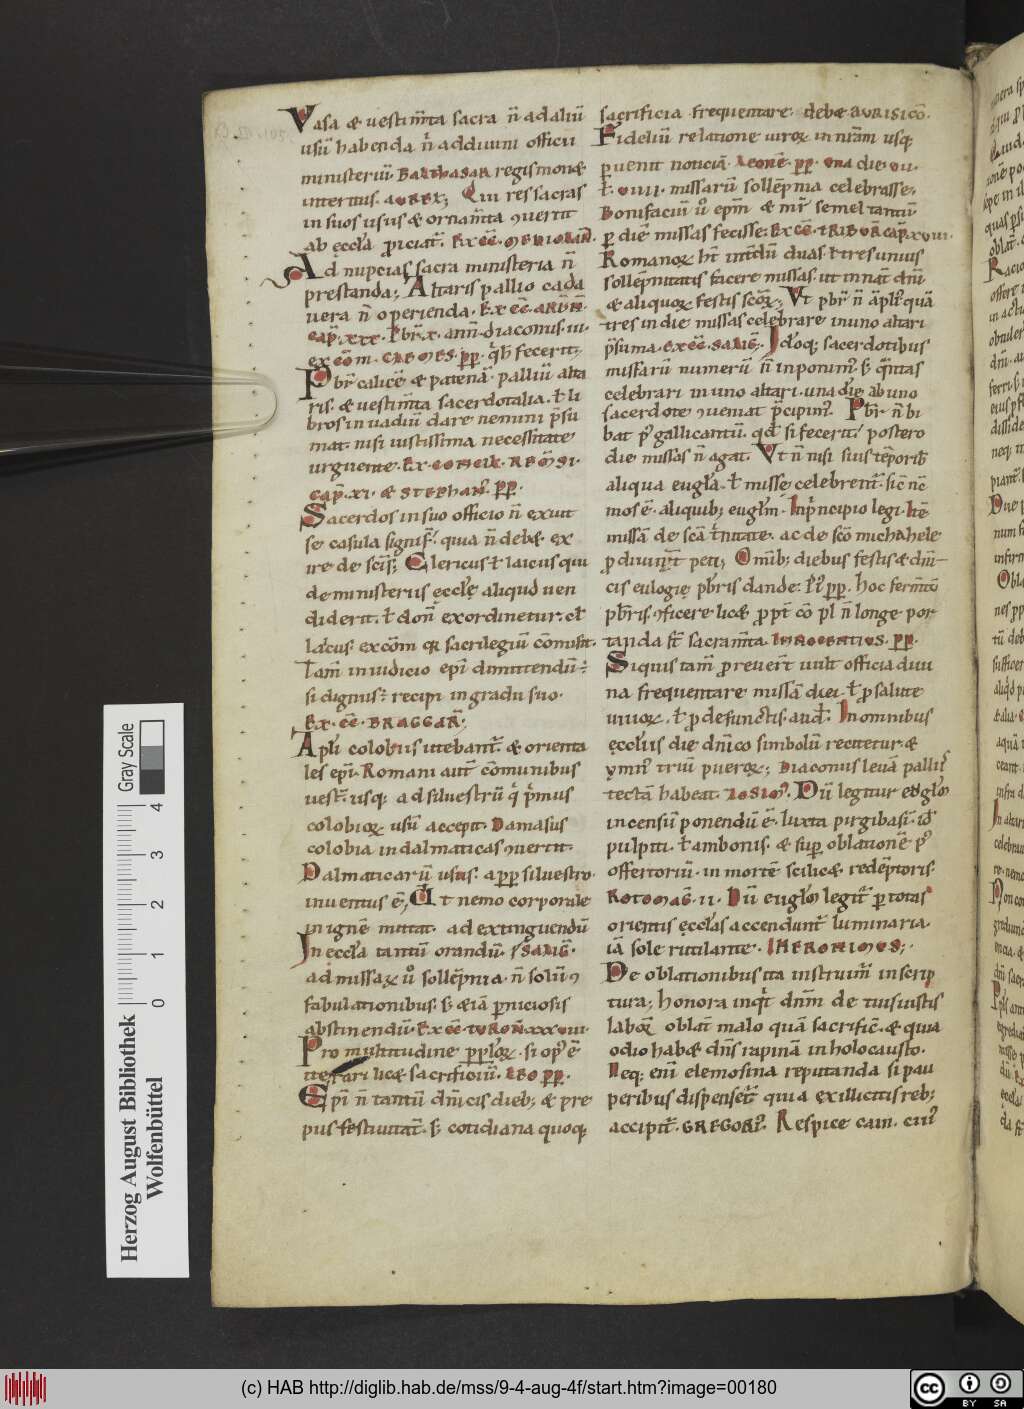 Vasa & uestim̄ta sacra n̄ ad aliū
usū habenda n̄ ad diuini officii
ministeriū. BALTHASAR regis mone&
interitus. AUREL; Qui res sacras
in suos usus & ornam̄ta ꝯuertit
ab eccl̄a ꝓiciat̄. EX CC̄.
Ad nupcias sacra ministeria n̄
prestanda; Altaris pallio cada
uera n̄ operienda. EX CC̄.
CAP̄. XXX. P̄br̄. x. ann̄. diaconus. iii.
ex cōm. CLEMES. P̄P̄. qi h̄ fecerit;
P̄br̄ calicē & patenā. palliū alta
ris. & uestim̄ta sacerdotalia. ł li
bros in uadiū dare nemini p̄su
mat. nisi iustissima necessitate
urguente. EX CONCIL. REM̄SI.
CAP̄. XI. & STEPHAN᾿. P̄P̄.
Sacerdos in suo officio n̄ exuit
se casula signif̄. quia n̄ deb& ex
ire de sc̄is; Clericus ł laicus qui
de ministeriis ęccl̄ę aliquid uen
diderit. ł don̄ ex ordinetur. cl̄
laicus excōm qr sacrilegiū cōmisit.
Tam̄ in iudicio ep̄i dimittendū;
si dignus; recipi in gradu suo.
EX. CC̄. BRAGGAR̄;
Apl̄i colobiis utebant̄. & orienta
les ep̄i. Romani aut̄ cōmunibus
uest̄. usq; ad siluestrū q̇ p̄mus
colobioꝝ usū accepit. Damasus
colobia in dalmaticas ꝯuertit.
Dalmaticarū usus. a p̄p̄ siluestro.
inuentus ē; Ut nemo corporale
in ignē mittat. ad extinguendū
In eccl̄a tantū orandū.
ad missaꝝ ů sollēpnia. n̄ solū ꝯ
fabulationibus. s; &iā ꝑniciosis
abstinendū. EX CC̄ TURON̄. XXXVIII.
Pro multitudine ꝓploꝝ. si op᾿ ē
iterari lic& sacrificiū. LEO P̄P̄.
Ep̄i n̄ tantū dn̄icis dieb; & pre
pus festiuitat̄. s; cotidiana quoq;
sacrificia frequentare deb& AURISICŌ.
Fideliū relatione uiroꝝ in nr̄am usq;
ꝑuenit noticiā. LEONĒ. P̄P̄. una die. VII.
ł. VIIII. missarū sollēpnia celebrasse;
Bonifaciū ů ep̄m & mr̄ semel tantū
ꝑ diē missas fecisse; EX CC̄. TRIBUR̄ CAP̄. XVIII.
Romanoꝝ h̄t int̄dū duas. ł tres unius
sollēpnitatis facere missas. ut in nat̄ dn̄i
& aliquoꝝ festis scōꝝ; Ut p̄br̄ n̄ āpli᾿ quā
tres in die missas celebrare in uno altari
p̄suma. EX CC̄. SALIG̅; Idoq; sacerdotibus
missarū numerū n̄ inponim᾿ s; qi̇ntas
celebrari in uno altari. una die ab uno
sacerdote ꝯueniat p̄cipim᾿. P̄br̄ n̄ bi
bat p᾿ gallicantū. qđ si fecerit; postero
die missas n̄ agat. Ut n̄ nisi suis tēporib᾿
aliqua eugl̄a. ł misse celebrent̄. sic̄ nc̄
mos ē. aliquib; eugl̄m. Inp̄ncipio legi. Itē
missā de scā t̄nitate. ac de scō michahele
ꝓ diuinit̄ peti; Omib; diebus festis & dn̄i
cis eulogię p̄bris dande. hoc ferm̄tū
p̄bris ꝯficere lic& ꝓpt̄ cō pl̄ n̄ longe por
tanda st̄ sacram̄ta. INNOCENTIUS. P̄P̄.
Si quis tam̄ ꝓ reuer̄t uult officia diui
na frequentare. missā diei. ł ꝓ salute
uiuoꝝ. ł ꝓ defunctis audi. In omnibus
ęccl̄iis die dn̄ico simbolū recitetur &
ymn᾿ triū pueroꝝ; Diaconus leuā pallii᾿
tectā habeat. ZOSIM᾿. Dū legitur eūgl̄m
incensū ponendū ē. Iuxta pirgibasi. id᾿
pulpiti. ł ambonis. & suꝑ oblationē p᾿
offertoriū. in mortē scilic& redēptoris.
ROTOMAG̅. II. Dū eugl̄m legit̄ ꝑ totas
orientis ęccl̄as accendunt̄ luminaria.
iā sole rutilante. IHERONIMUS;
De oblationibus ita instruim̄ in scrip
tura; honora inqt̄ dn̄m de tuis iustis
laboꝝ oblat̄ malo quā sacrific̄. & quia
odio hab& dn̄s rapinā in holocausto.
Neq; enī elemosina reputanda si pau
peribus dispenset̄ quia ex illicitis reb;
accipit̄. GREGORI᾿. Respice cain. cui᾿
Gray Scale
0 1 2 3 4
Herzog August Bibliothek
Wolfenbüttel
(c) HAB http://diglib.hab.de/mss/9-4-aug-4f/start.htm?image=00180
CC BY SA